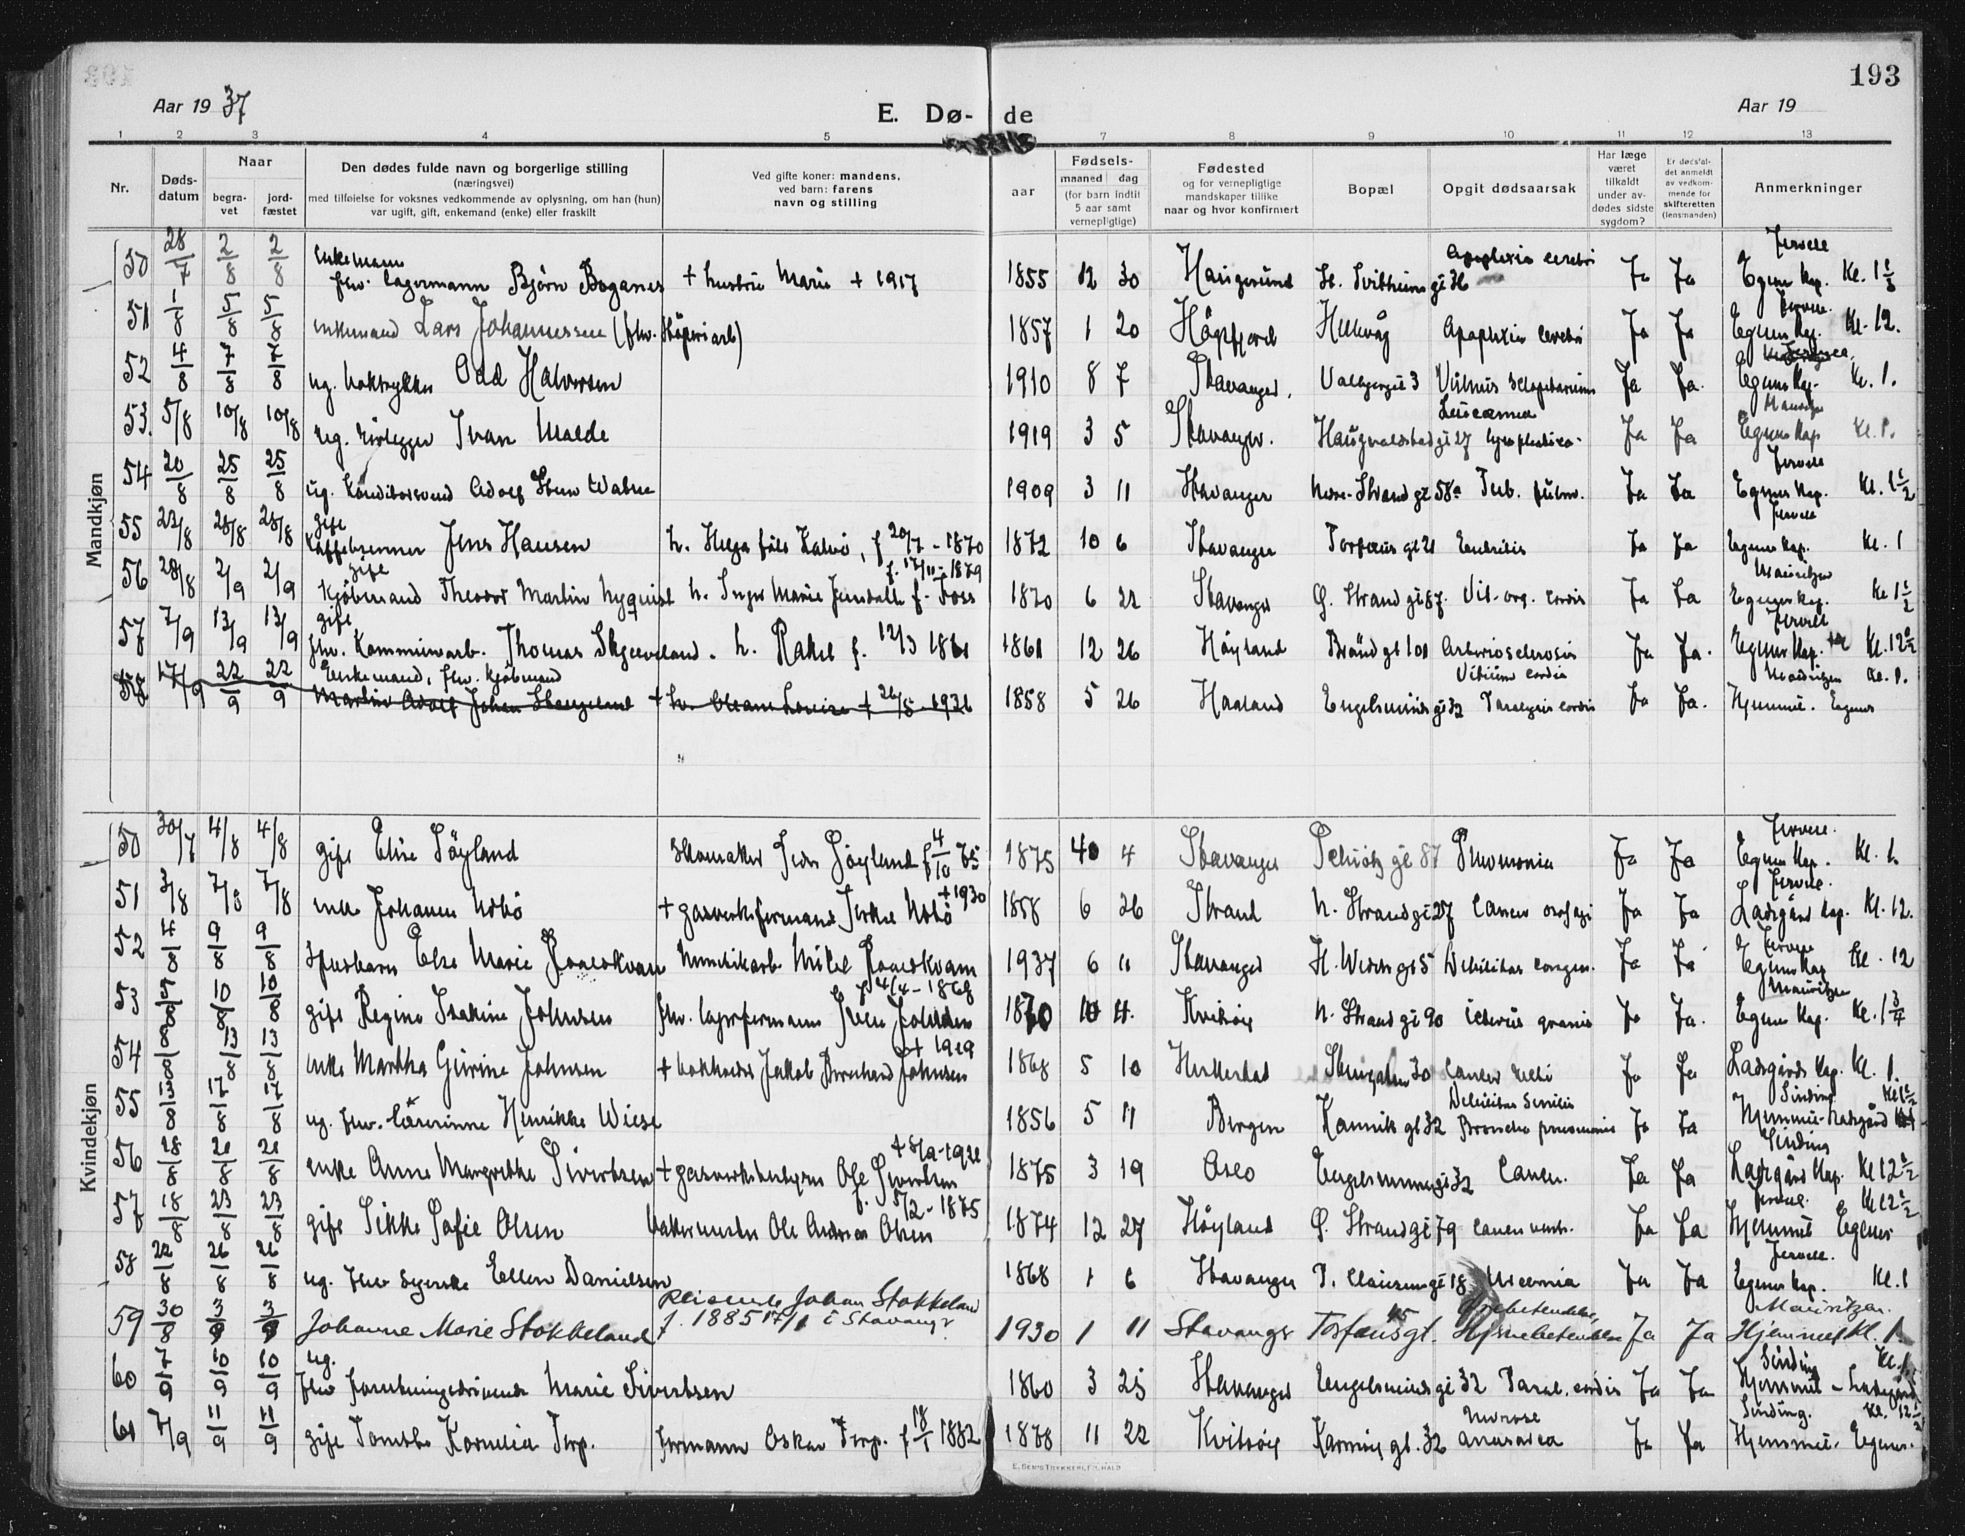 193
Aar 19 37
E. Dø- de
Aar 19
1 2 3 4 5 7 8 9 10 11 12 13
Nr.
Døds-
datum
Naar
begra-
vet
jord-
fæstet
Den dødes fulde navn og borgerlige stilling
(næringsvei)
med tilføielse for voksnes vedkommende av oplysning, om han (hun)
var ugift, gift, enkemand (enke) eller fraskilt
Ved gifte koner: mandens,
ved barn: farens
navn og stilling
aar
Fødsels-
maaned dag
(for barn indtil
5 aar samt
vernepligtige)
Fødested
og for vernepligtige
mandskaper tillike
naar og hvor konfirmert
Bopæl
Opgit dødsaarsak
Har læge
været
tilkaldt
under av-
dødes sidste
sygdom?
Er dødsfal-
det anmeldt
av vedkom-
mende for
skifteretten
(lensmanden)
Anmerkninger
Mandkjøn
50 28/7 2/8 2/8 enkemann fhv. lagermann Bjørn Boganes + hustru Marie + 1917 1855 12 30 Haugesund St. Svithuns gt 36 Apoplexia cerebri Ja Ja Egenes Kap. Kl. 1 1/2
51 1/8 5/8 5/8 enkemand Lars Johannessen (fhv. støperiarb) 1857 1 20 Høgsfjord Hillevåg Apoplexia cerebri Ja Ja Egenes Kap. Kl. 12.
52 4/8 7/8 7/8 ug. boktrykker Odd Halvorsen 1910 8 7 Stavanger. Valberggt 3 Ja Ja. Egenes Kap. Kl. 1.
53. 5/8 10/8 10/8 ug. rørlegger Ivan Malde 1919 3 5 Stavanger. Haugvaldstads gt 27 Leucaemia lymphatica. Ja Ja Egenes Kap Kl. 1.
54 20/8 25/8 25/8 ug. Konditorsvend Adolf Sten Watne 1909 3 11 Stavanger Nedre Strand gt 58a Tub. pulm. Ja Ja Egenes Kap. Kl. 1 1/2
55 23/8 28/8 28/8 gift Kaffebrenner Jens Hansen h. Helga født Kalvø, f 20/7 - 1870 1872 10 6 Stavanger Torfæus gt 21 Ja Ja Egenes Kap. Kl. 1
56 28/8 2/9 2/9 gift Kjøbmand Theodor Martin Nyquist h. Inger Marie f. Foss f. 17/11 - 1879 1870 6 22 Stavanger Ø. Strand gt 87. Vit. org. cordis Ja Ja Mauritzen Egenes Kap. Kl 1 1/2
57 7/9 13/9 13/9 gift fhv. Kommunearb. Thomas Skjæveland. h. Rakel f. 12/3 1861 1861 12 26 Høyland Brand gt 101 Arteriosclerosis Ja Ja. Egenes Kap. Kl. 12 1/2
58 17/9 22/9 22/9 Enkemand, fhv. Kjøbmand Martin Adolf Johan Haugeland + h. Louise + 26/5 - 1936 1858 5 26 Haaland Engelsminds gt 32 Vitium cordis Paralysis cordis Ja Ja. Mauritzen Kl. 1. Hjemmet. Egenes
Kvindekjøn
50 30/7 4/8 4/8 gift Elise Søyland skomaker Iver Søyland f 4/10 75 1875 10 4 Stavanger Pedersgt 87 Pneumonia Ja Ja Egenes Kap. Kl. 1.
51 3/8 7/8 7/8 enke Johanne Nebø + gasverksformand Nebø + 1930 1858 6 26 Strand N. Strandgt 27 Cancer oesofagi Ja Ja Ladegård Kap. Kl. 12.
52 4/8 9/8 9/8 spedbarn Else Marie 1937 6 11 Stavanger H. Weders gt 5 Debilitas congen. Ja Ja Egenes Kap Kl. 12
53 5/8 10/8 10/8 gift Regine Isakine Johnsen fhv. lagerformann Iver Johnsen f 4/4 - 1868 1870 10 4. Kvitsøy N. Strand gt 90 Icterus gravis Ja Ja. Mauritzen Egenes Kap. Kl. 1 3/4
54 8/8 13/8 13/8 enke Martha Gurine Johnsen + bokholder Jakob Bernhard Johnsen + 1919 1868 5 10 Steingaten 30 Cancer Ja Ja Ladegårds Kap. Kl. 1.
55 13/8 17/8 17/8 ug. fhv. lærerinne Henrikke Wiese 1856 5 11 Bergen Kannik gt 32 Debilitas senilis Broncho pneumonia Ja Ja Sinding Kl 1 1/2 Hjemmet - Ladegård
56 18/8 26/8 26/8 enke Anne Margrethe Sivertsen + gasverksbestyrer Ole Sivertsen 1875 3 19 Oslo Engelsminds gt 32 Cancer. Ja Ja Sinding Ladegård Kap. Kl 12 1/2
57 18/8 23/8 23/8 gift Sikke Sofie Olsen bakermester Ole Andreas Olsen f. 5/2 - 1875 1874 12 27 Høyland Ø. Strandgt 79 Cancer ventr. Ja Ja Kl 12 1/2 Hjemmet Egenes
58 22/8 26/8 26/8 ug. fhv syerske Ellen Danielsen 1868 1 6 Stavanger P. Clausens gt 18 Ja Ja Egenes Kap. Kl. 1
59 30/8 3/9 3/9 Johanne Marie Stokkeland Reisende Johan Stokkeland f. 1885 17/1 i Stavangr. 1930 1 11 Stavangr Torfæusgt. 45 Hjernebetendelse Ja Ja Mauritzen. Hjemmet Kl. 1.
60 7/9 10/9 10/9 ug. fhv forretningsdrivende Marie Sivertsen 1860 3 25 Stavanger Engelsminds gt 32 Paral. cordis Ja Ja Sinding Kl. 1 Hjemmet - Ladegård
61 7/9 11/9 11/9 gift Tomste Kornelia Terp. formann Oskar Terp. f 18/1 1882 1878 11 22 Kvitsøy Karmøy gt. 32 Ja Ja Sinding. Kl. 12 1/2 Hjemmet. Egenes.